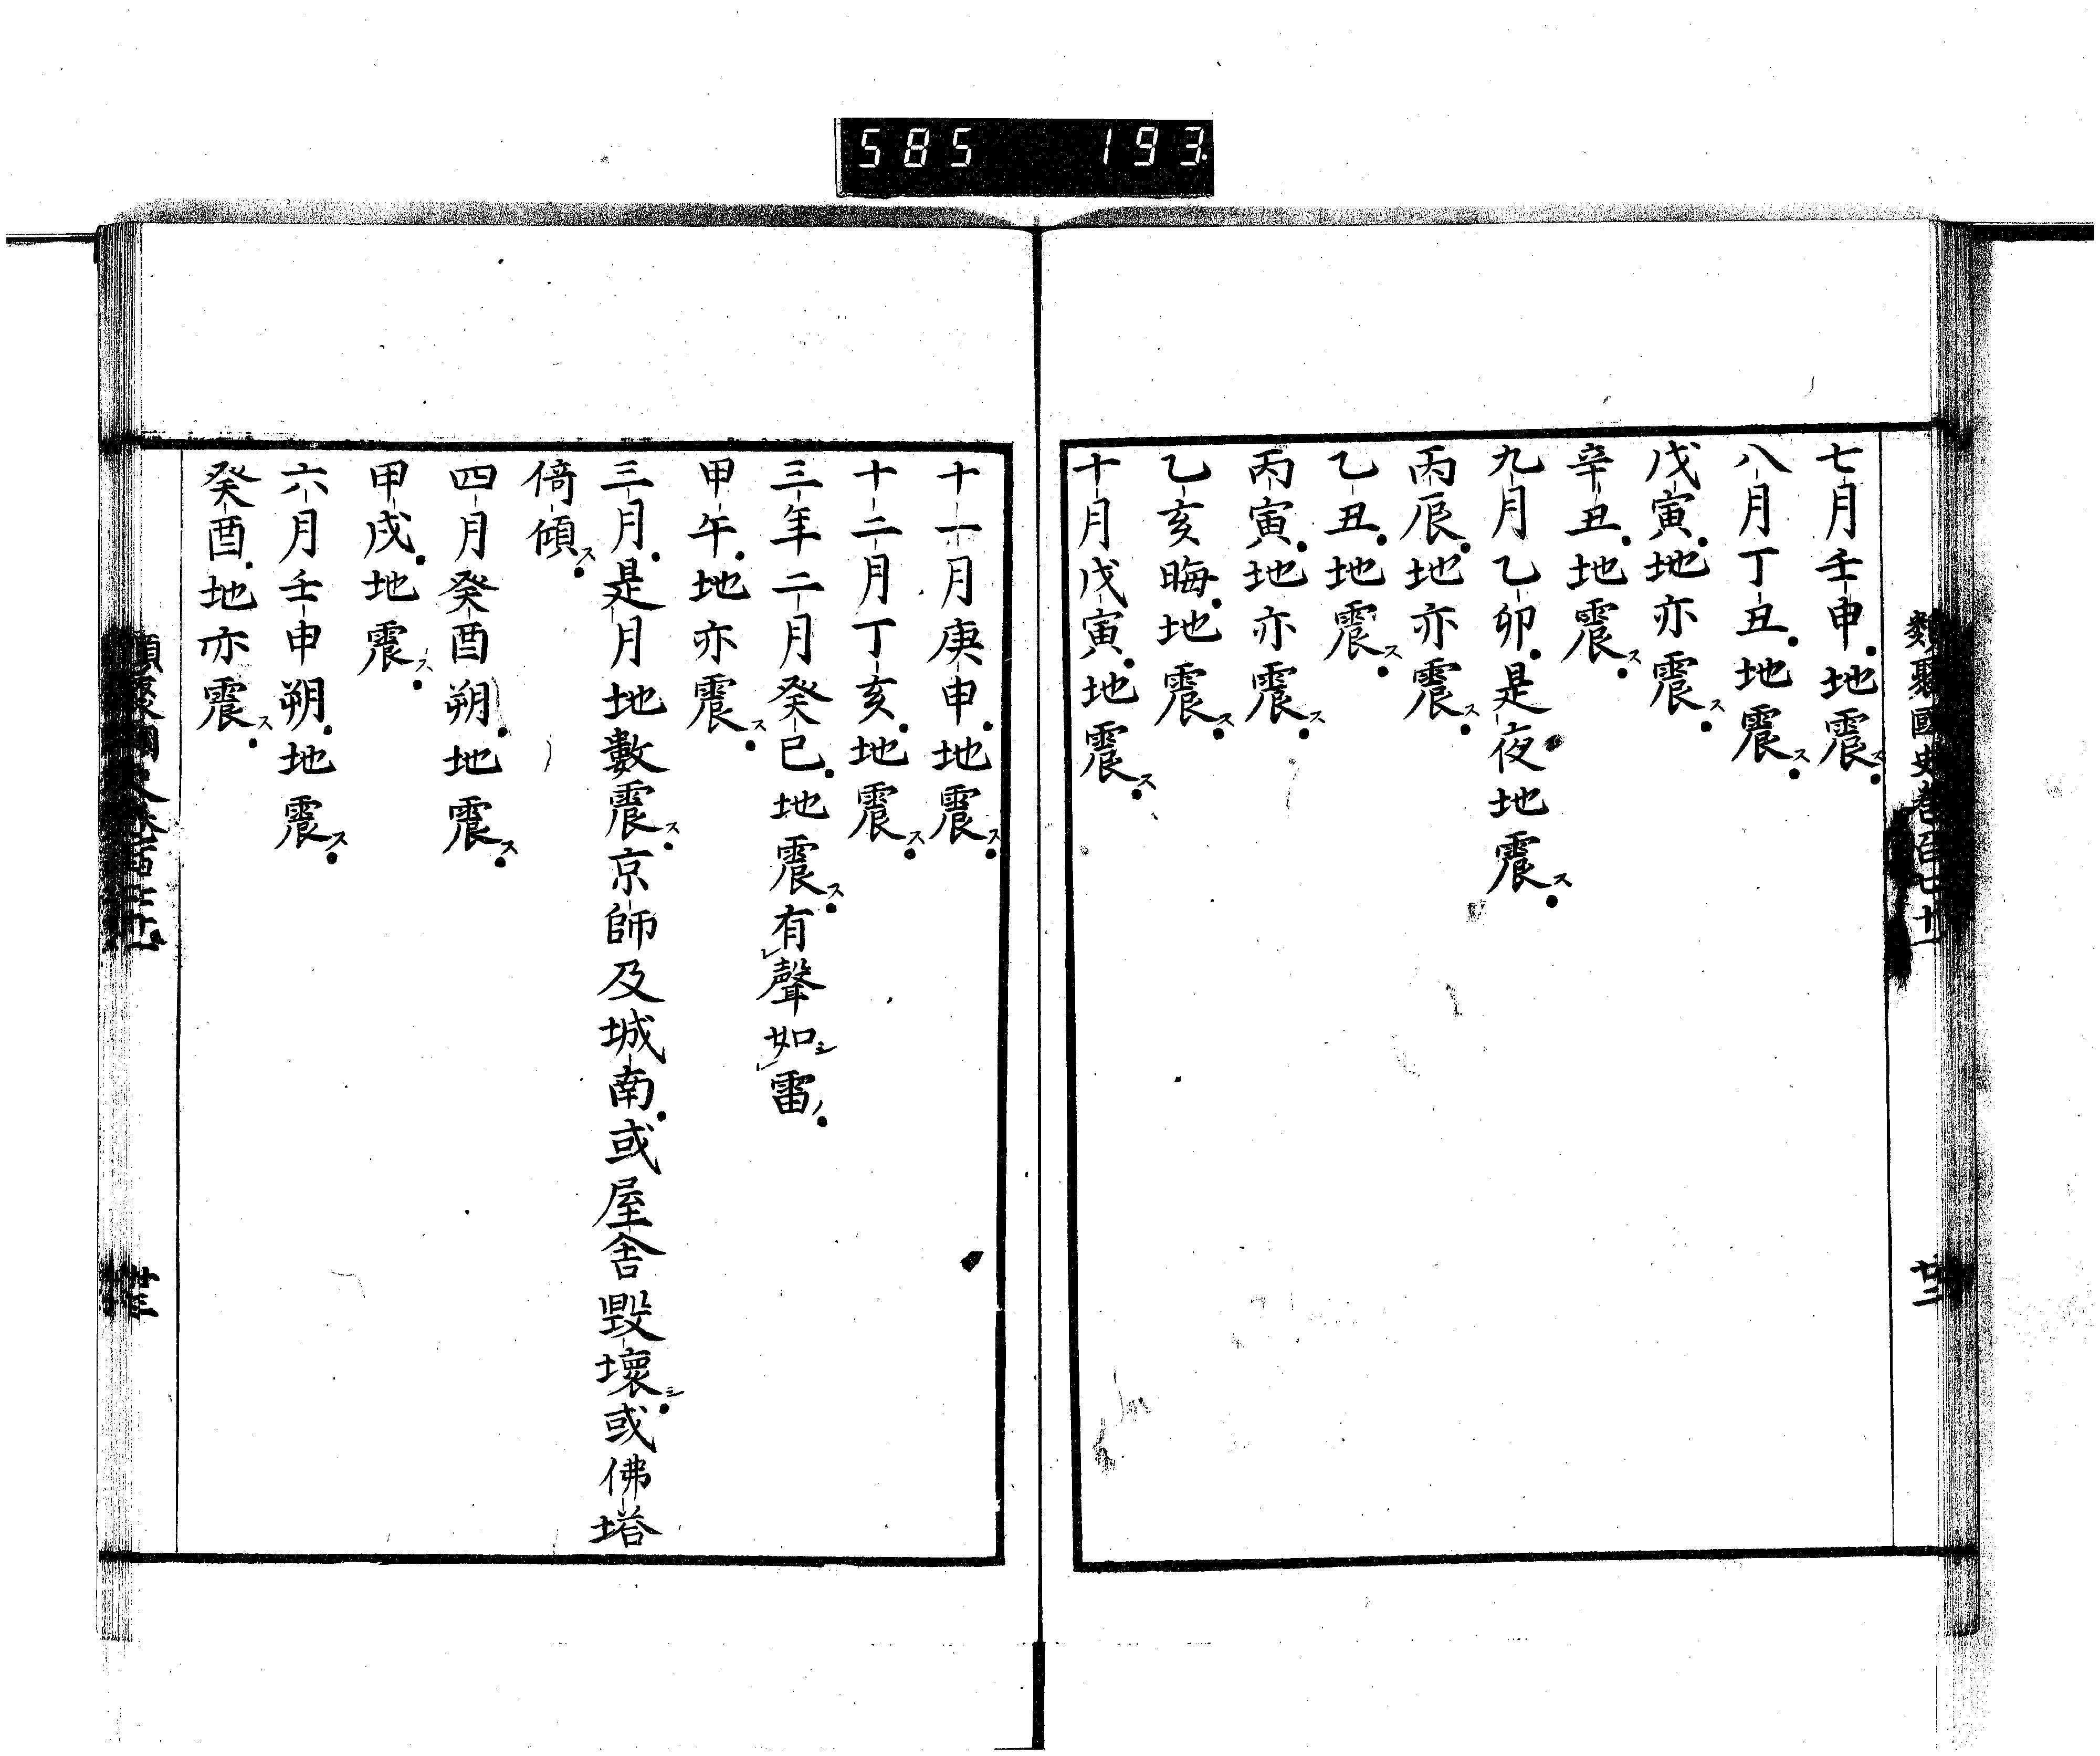 585 193
類聚國史卷百七十一
廿二
七月壬申地震ス
八月丁丑地震ス
戊寅地亦震ス
辛丑地震ス
九月乙卯是夜地震ス
丙辰地亦震ス
乙丑地震ス
丙寅地亦震ス
乙亥晦地震ス
十月戊寅地震ス
十一月庚申地震ス
十二月丁亥地震ス
三年二月癸巳地震ス有レ聲如シレ雷ノ
甲午地亦震ス
三月是月地數震ス京師及城南或屋舎毀壞シ或佛塔
倚傾ス
四月癸酉朔地震ス
甲戌地震ス
六月壬申朔地震ス
癸酉地亦震ス